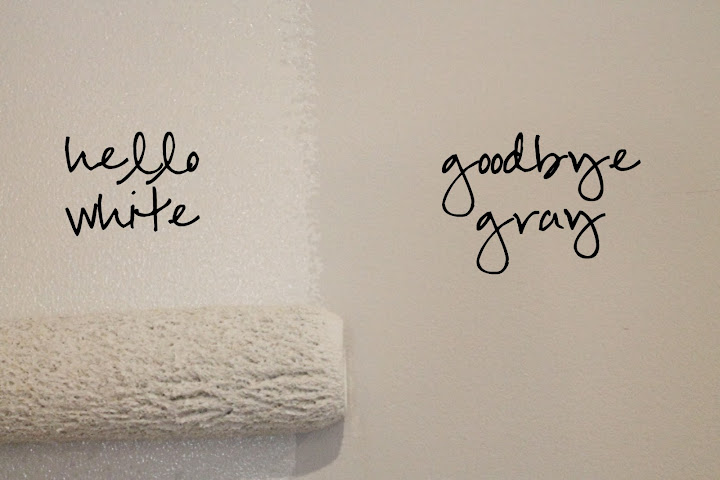 hello
white
goodbye
gray